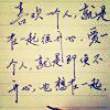 喜欢一个人,就是
在一起很开心,爱一
个人,就是即使不
开心,也想在一起